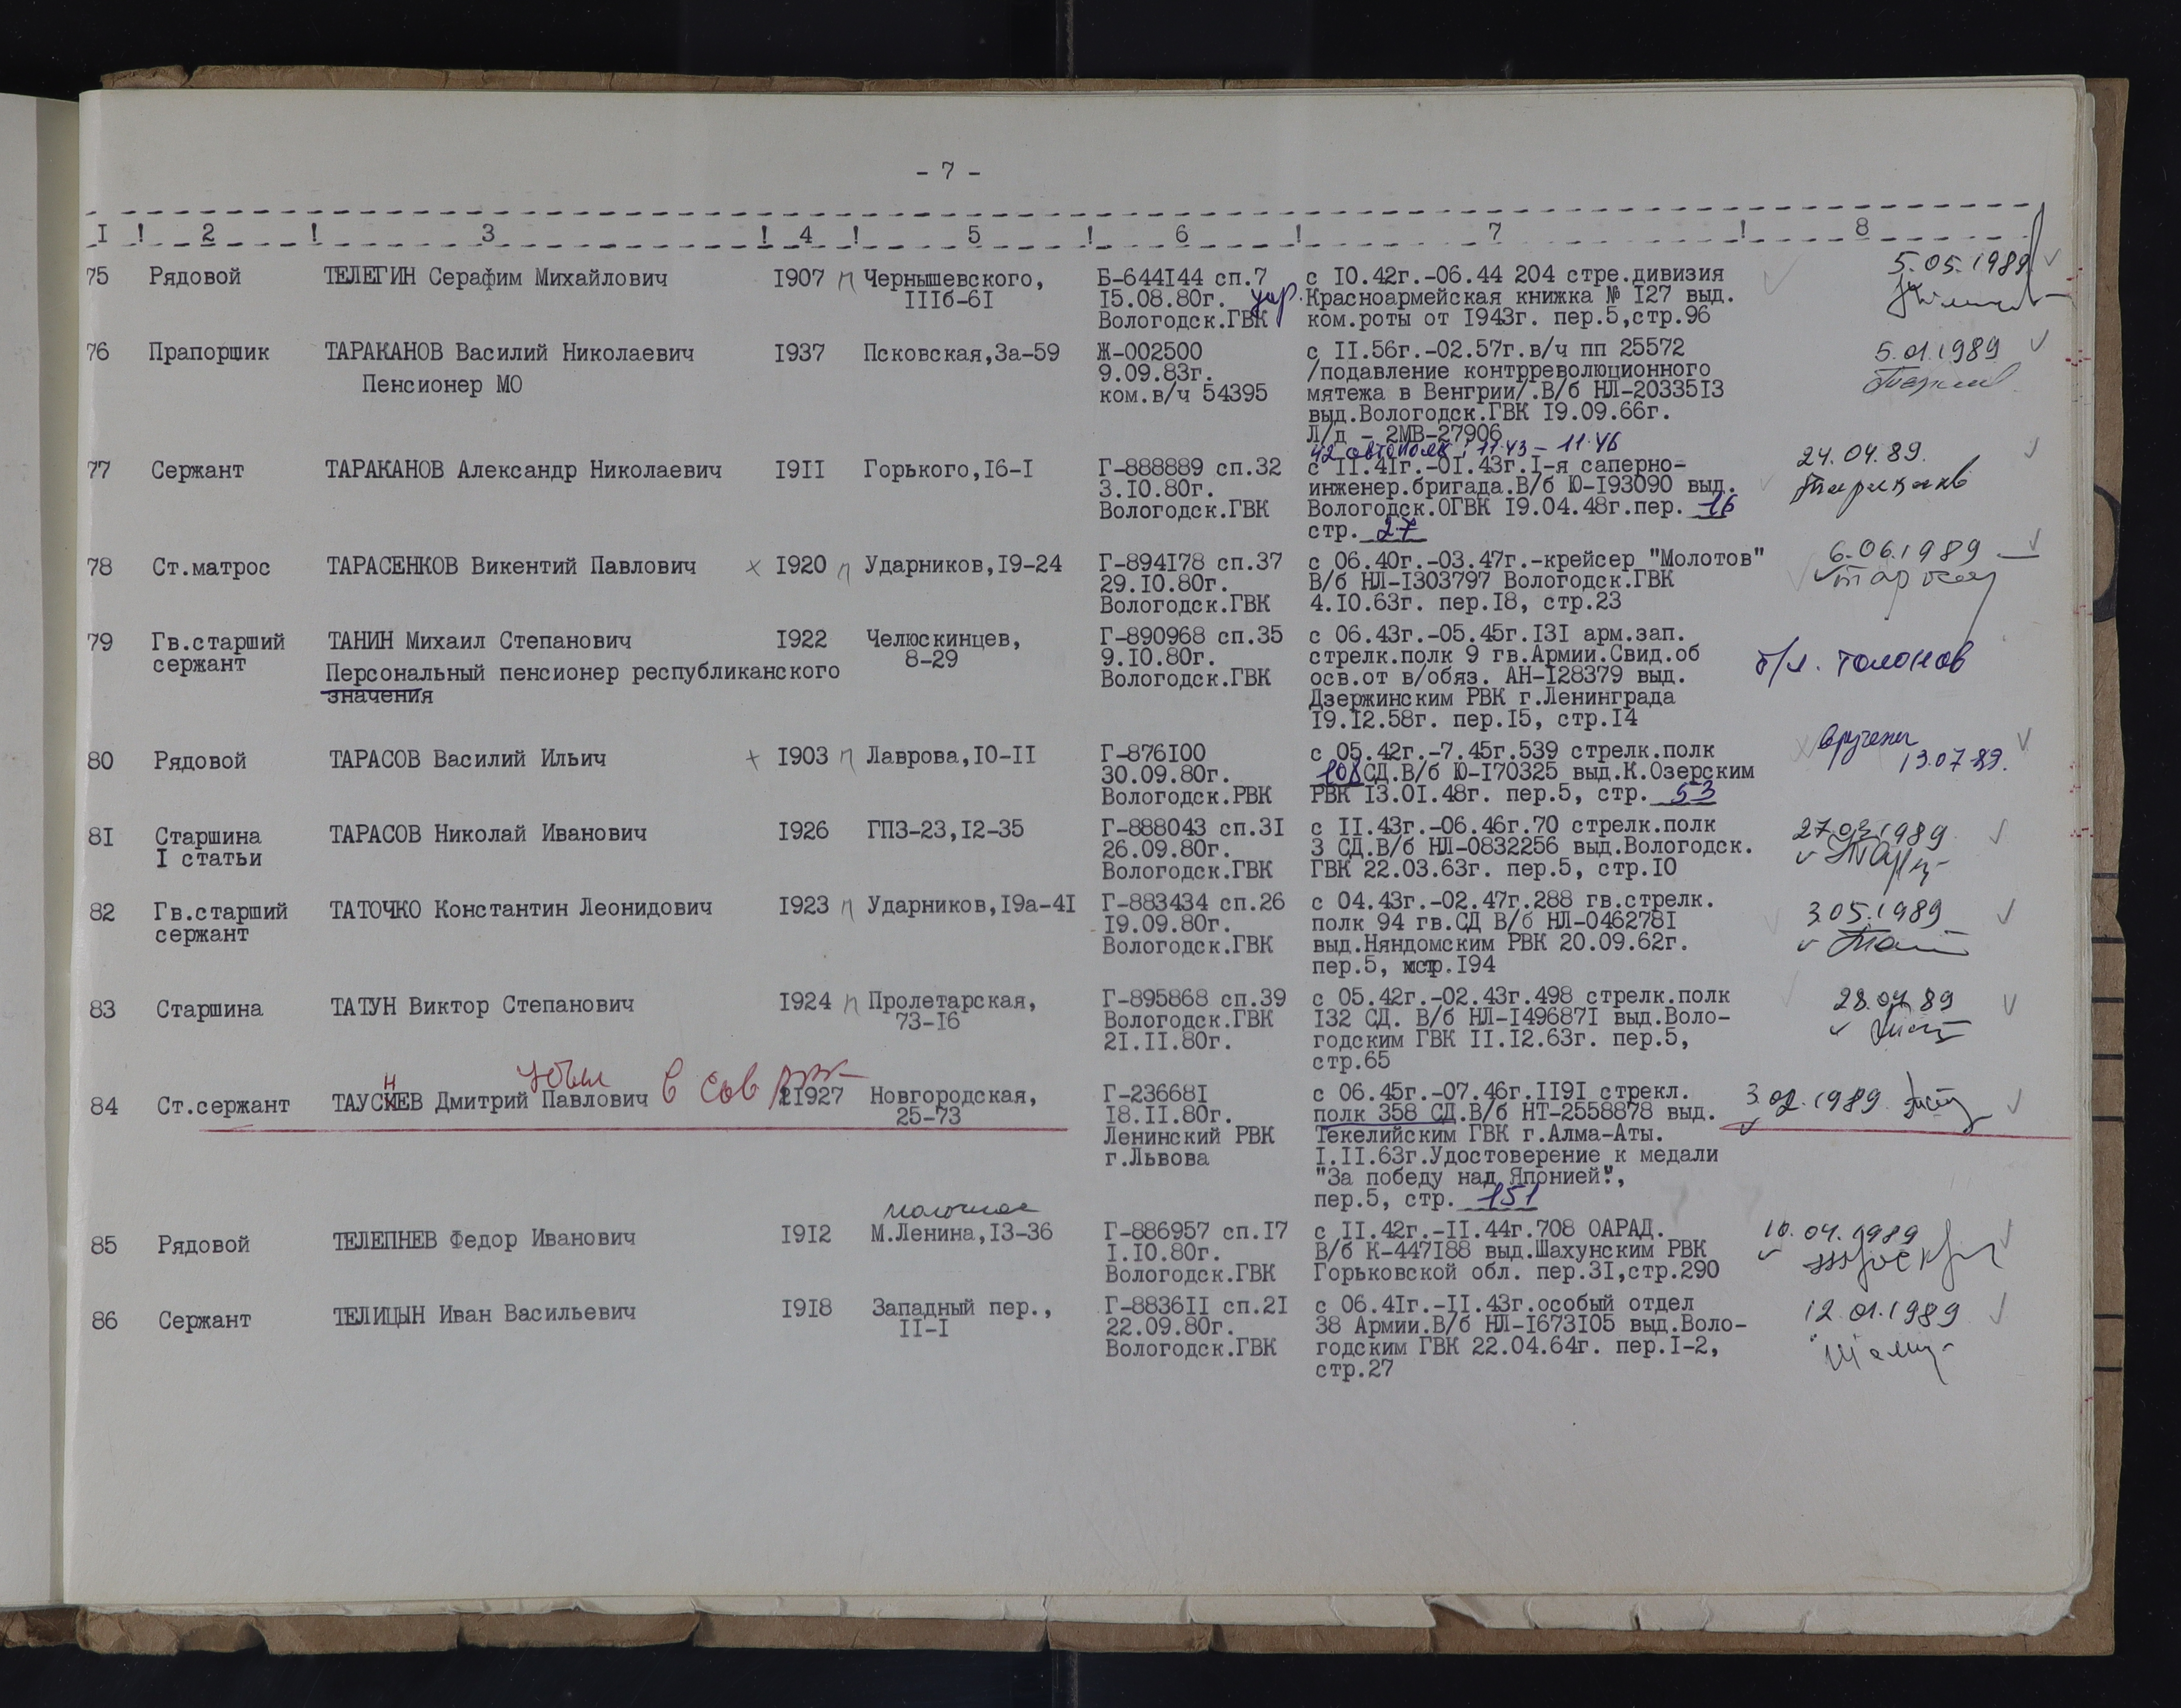 - 7 -
I ! 2 ! 3 ! 4 ! 5 ! 6 ! 7 ! 8
75 Рядовой ТЕЛЕГИН Серафим Михайлович 1907 п Чернышевского, Б-644144 сп.7 с 10.42г.-06.44 204 стре.дивизия 5.05.1989
IIIб-6I 15.08.80г. Красноармейская книжка № 127 выд.
Вологодск.ГВК ком.роты от 1943г. пер.5,стр.96
76 Прапорщик ТАРАКАНОВ Василий Николаевич 1937 Псковская,3а-59 Ж-002500 с 11.56г.-02.57г.в/ч пп 25572 5.01.1989
Пенсионер МО 9.09.83г. /подавление контрреволюционного
ком.в/ч 54395 мятежа в Венгрии/.В/б НЛ-2033513
выд.Вологодск.ГВК 19.09.66г.
Л/д - 2МВ-27906
42 автополк, 11.43 - 11.46
77 Сержант ТАРАКАНОВ Александр Николаевич 1911 Горького,16-1 Г-888889 сп.32 с 11.41г.-01.43г.1-я саперно- 24.04.89.
3.10.80г. инженер.бригада.В/б Ю-193090 выд. Тараканов
Вологодск.ГВК Вологодск.ОГВК 19.04.48г.пер. 16
стр. 27
78 Ст.матрос ТАРАСЕНКОВ Викентий Павлович х 1920 п Ударников,19-24 Г-894178 сп.37 с 06.40г.-03.47г.-крейсер "Молотов" 6.06.1989
29.10.80г. В/б НЛ-1303797 Вологодск.ГВК
Вологодск.ГВК 4.10.63г. пер.18, стр.23
79 Гв.старший ТАНИН Михаил Степанович 1922 Челюскинцев, Г-890968 сп.35 с 06.43г.-05.45г.131 арм.зап.
сержант 8-29 9.10.80г. стрелк.полк 9 гв.Армии.Свид.об б/л. талонов
Персональный пенсионер республиканского Вологодск.ГВК осв.от в/обяз. АН-128379 выд.
значения Дзержинским РВК г.Ленинграда
19.12.58г. пер.15, стр.14
80 Рядовой ТАРАСОВ Василий Ильич + 1903 п Лаврова,10-11 Г-876100 с 05.42г.-7.45г.539 стрелк.полк вручены
30.09.80г. 108 СД.В/б Ю-170325 выд.К.Озерским 13.07.89.
Вологодск.РВК РВК 13.01.48г. пер.5, стр. 53
81 Старшина ТАРАСОВ Николай Иванович 1926 ГПЗ-23,12-35 Г-888043 сп.31 с 11.43г.-06.46г.70 стрелк.полк 27.03.1989
I статьи 26.09.80г. 3 СД.В/б НЛ-0832256 выд.Вологодск.
Вологодск.ГВК ГВК 22.03.63г. пер.5, стр.10
82 Гв.старший ТАТОЧКО Константин Леонидович 1923 п Ударников,19а-41 Г-883434 сп.26 с 04.43г.-02.47г.288 гв.стрелк. 3.05.1989
сержант 19.09.80г. полк 94 гв.СД В/б НЛ-0462781
Вологодск.ГВК выд.Няндомским РВК 20.09.62г.
пер.5, стр.194
83 Старшина ТАТУН Виктор Степанович 1924 п Пролетарская, Г-895868 сп.39 с 05.42г.-02.43г.498 стрелк.полк 28.04.89
73-16 Вологодск.ГВК 132 СД. В/б НЛ-1496871 выд.Воло-
21.11.80г. годским ГВК 11.12.63г. пер.5,
стр.65
убыл в Сов РВК
84 Ст.сержант ТАУСНЕВ Дмитрий Павлович 1927 Новгородская, Г-236681 с 06.45г.-07.46г.1191 стрекл. 3.02.1989
25-73 18.11.80г. полк 358 СД.В/б НТ-2558878 выд.
Ленинский РВК Текелийским ГВК г.Алма-Аты.
г.Львова 1.11.63г.Удостоверение к медали
"За победу над Японией",
пер.5, стр. 151
молочное
85 Рядовой ТЕЛЕПНЕВ Федор Иванович 1912 М.Ленина,13-36 Г-886957 сп.17 с 11.42г.-11.44г.708 ОАРАД. 10.04.1989
1.10.80г. В/б К-447188 выд.Шахунским РВК
Вологодск.ГВК Горьковской обл. пер.31,стр.290
86 Сержант ТЕЛИЦЫН Иван Васильевич 1918 Западный пер., Г-883611 сп.21 с 06.41г.-11.43г.особый отдел 12.01.1989
11-1 22.09.80г. 38 Армии.В/б НЛ-1673105 выд.Воло-
Вологодск.ГВК годским ГВК 22.04.64г. пер.1-2,
стр.27